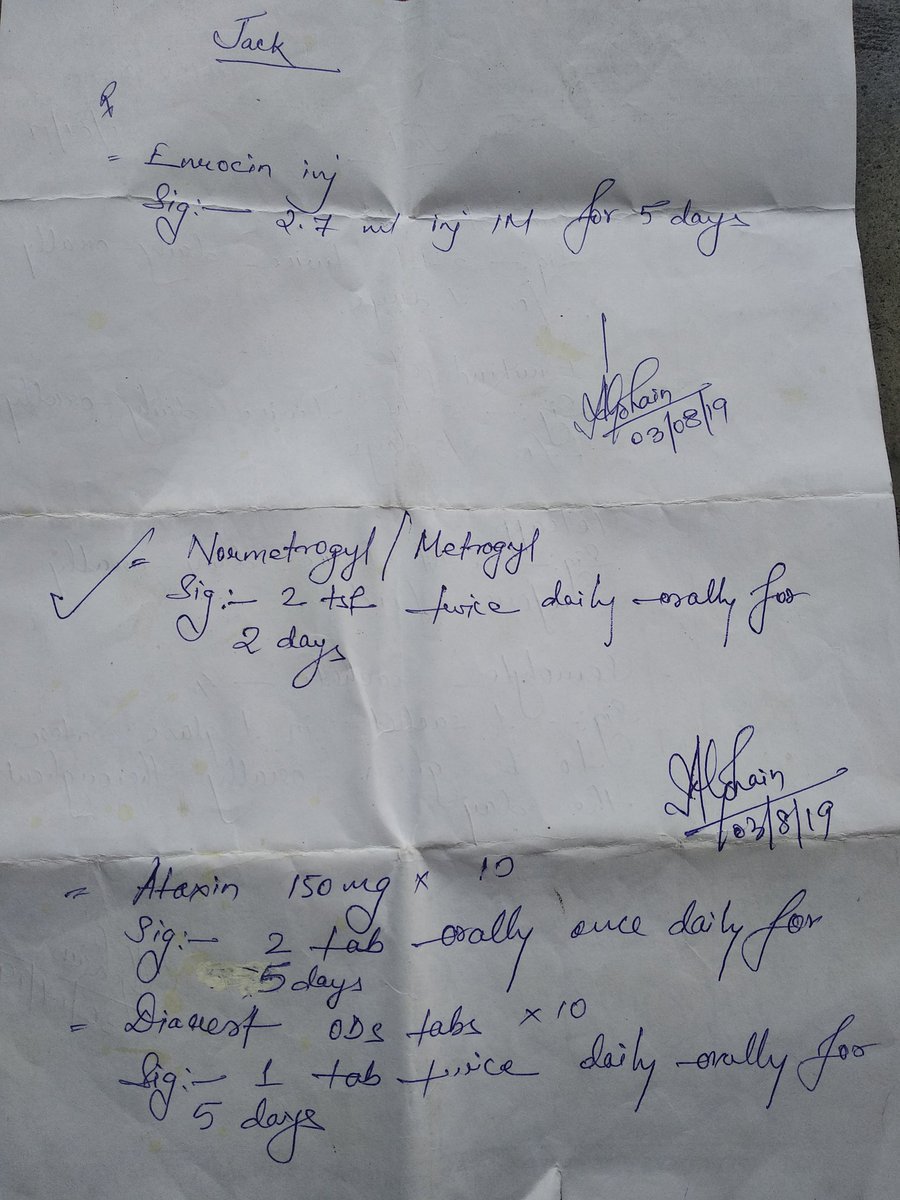 Jack
℞
= Enrocin inj
Sig:— 2.7 ml inj IM for 5 days
03/08/19
= Normetrogyl / Metrogyl
Sig:- 2 tsf twice daily orally for
2 days
03/8/19
= Ataxin 150mg × 10
Sig:- 2 tab orally once daily for
5 days
= Diarest ODs tabs × 10
Sig:- 1 tab twice daily orally for
5 days